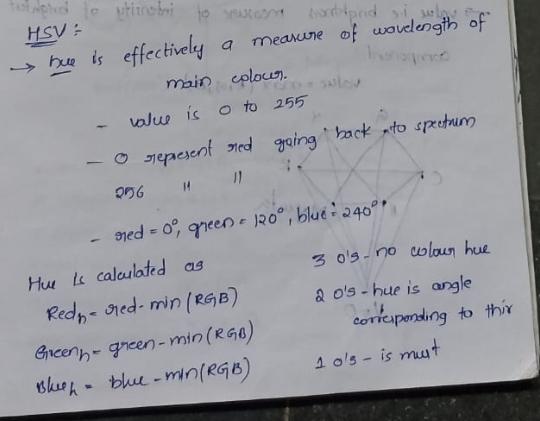 HSV :-
→ hue is effectively a measure of wavelength of
main colour.
- value is 0 to 255
- 0 represent red going back to spectrum
256 " "
- red = 0°, green = 120°, blue = 240°
Hue is calculated as
Red_h = red - min(RGB)
Green_h = green - min(RGB)
Blue_h = blue - min(RGB)
3 0's - no colour hue
2 0's - hue is angle
corresponding to thir
1 0's - is must